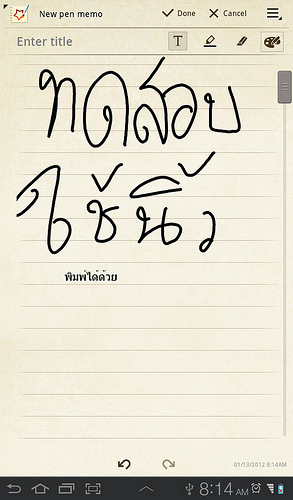 New pen memo Done Cancel
Enter title T
ทดสอบ
ใช้นิ้ว
พิมพ์ได้ด้วย
01/13/2012 8:14AM
8:14 AM